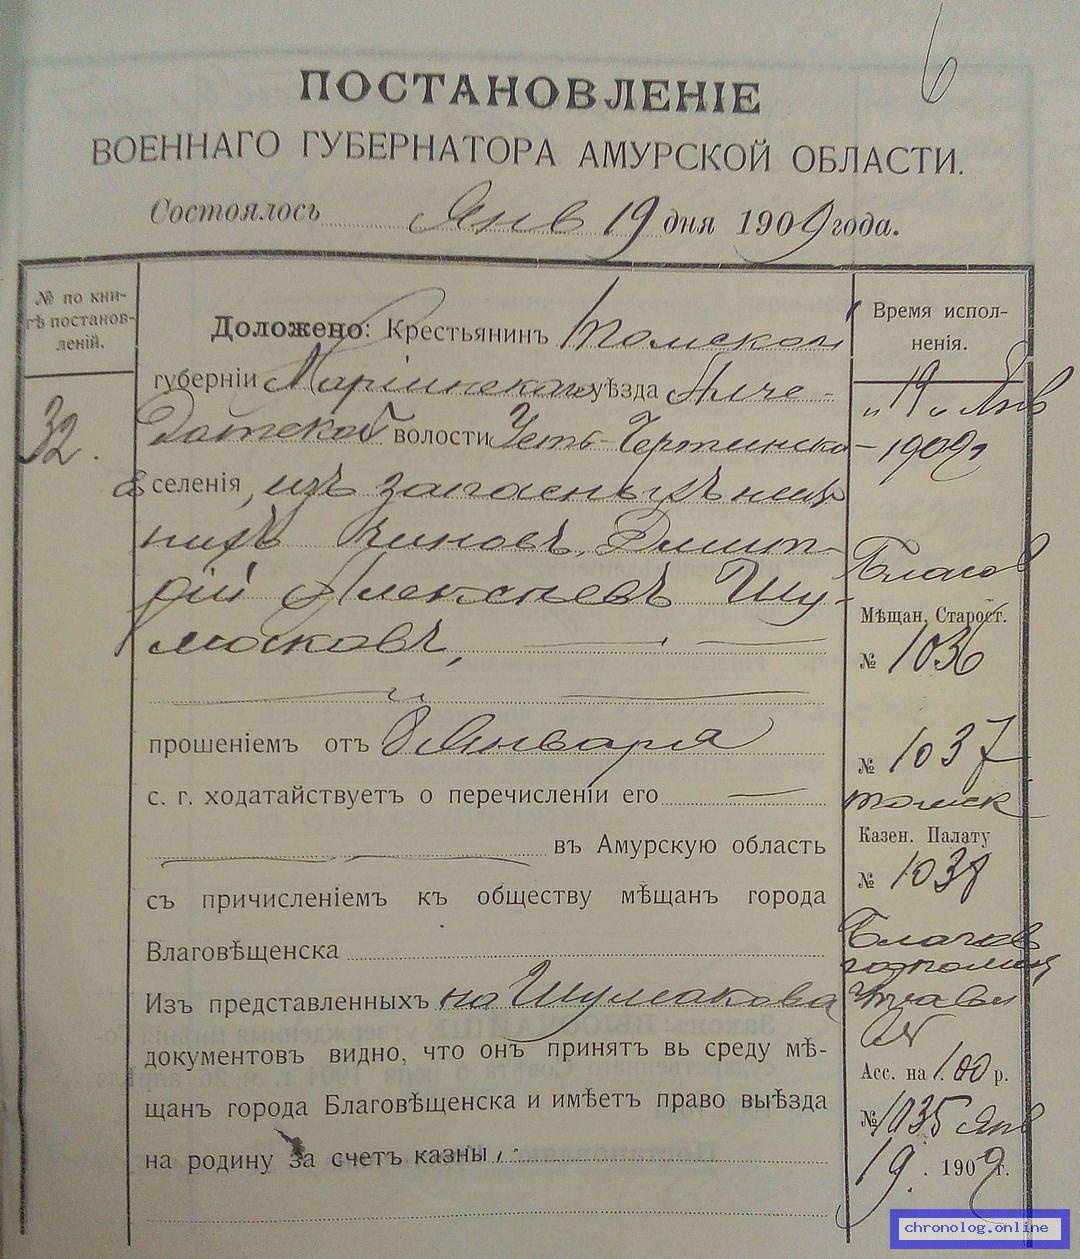 6
ПОСТАНОВЛЕНІЕ
ВОЕННАГО ГУБЕРНАТОРА АМУРСКОЙ ОБЛАСТИ.
Состоялось Янв 19 дня 1909 года.
№ по кни-
гѣ постанов-
леній.
32.
Доложено: Крестьянинъ Томской
губерніи Маріинскаго уѣзда Алче-
датской волости Усть-Чертинска-
селенія, изъ запасныхъ ниж
нихъ чиновъ, Дмит-
рій Алексѣевъ Шу-
маковъ,
прошеніемъ отъ 8 Января
с. г. ходатайствуетъ о перечисленіи его
въ Амурскую область
съ причисленіемъ къ обществу мѣщанъ города
Благовѣщенска
Изъ представленныхъ на Шумакова
документовъ видно, что онъ принятъ вь среду мѣ-
щанъ города Благовѣщенска и имѣетъ право выѣзда
на родину за счетъ казны
Время испол-
ненія.
"19" Янв
1909
Благов
Мѣщан. Старост.
№ 1036
№ 1037
Томск
Казен. Палату
№ 1038
Благов
Управл
Асс. на 1.00 р.
№ 1035 Янв
19. 1909 г.
chronolog.online